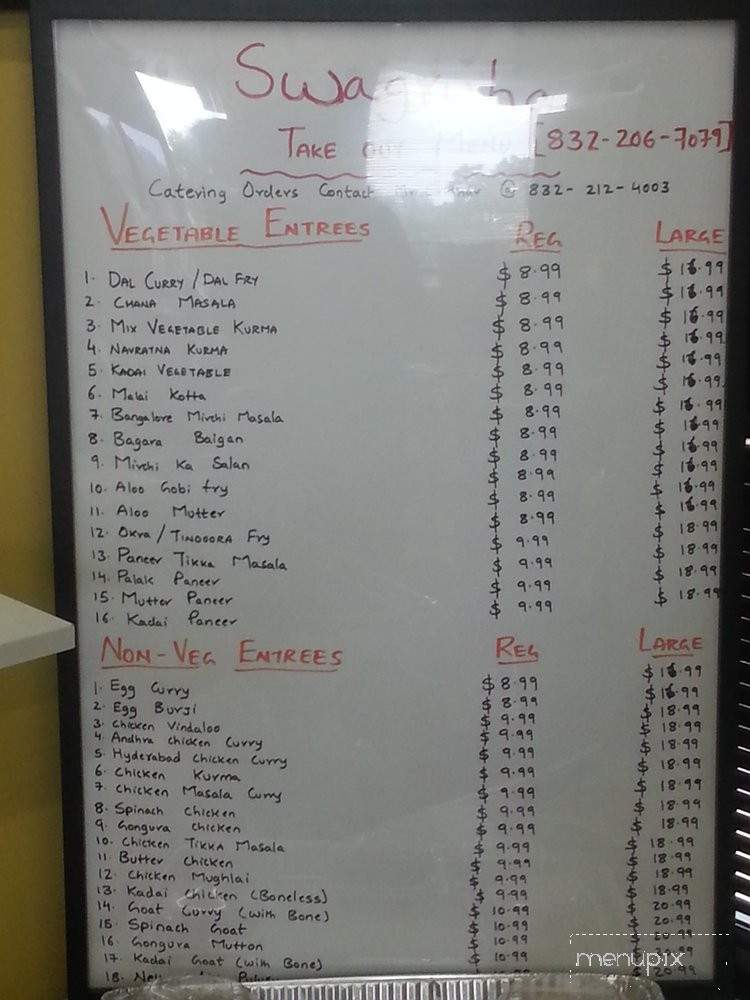 Swag
TAKE OUT Menu [832-206-7079]
Catering Orders Contact @ 832-212-4003
VEGETABLE ENTREES REG LARGE
1. DAL CURRY / DAL FRY $ 8.99 $ 16.99
2. CHANA MASALA $ 8.99 $ 16.99
3. MIX VEGETABLE KURMA $ 8.99 $ 16.99
4. NAVRATNA KURMA $ 8.99 $ 16.99
5. KADAI VEGETABLE $ 8.99 $ 16.99
6. Malai Kotta $ 8.99 $ 16.99
7. Bangalore Mirchi Masala $ 8.99 $ 16.99
8. Bagara Baigan $ 8.99 $ 16.99
9. Mirchi Ka Salan $ 8.99 $ 16.99
10. Aloo Gobi fry $ 8.99 $ 16.99
11. Aloo Mutter $ 8.99 $ 16.99
12. Okra / TINDOORA Fry $ 8.99 $ 16.99
13. Paneer TIKKA Masala $ 9.99 $ 18.99
14. Palak Paneer $ 9.99 $ 18.99
15. Mutter Paneer $ 9.99 $ 18.99
16. Kadai Paneer $ 9.99 $ 18.99
NON-VEG ENTREES REG LARGE
1. Egg Curry $ 8.99 $ 16.99
2. Egg Burji $ 8.99 $ 16.99
3. Chicken Vindaloo $ 9.99 $ 18.99
4. Andhra chicken Curry $ 9.99 $ 18.99
5. Hyderabad chicken Curry $ 9.99 $ 18.99
6. Chicken Kurma $ 9.99 $ 18.99
7. Chicken Masala Curry $ 9.99 $ 18.99
8. Spinach chicken $ 9.99 $ 18.99
9. Gongura chicken $ 9.99 $ 18.99
10. Chicken TIKKA Masala $ 9.99 $ 18.99
11. Butter Chicken $ 9.99 $ 18.99
12. Chicken Mughlai $ 9.99 $ 18.99
13. Kadai chicken (Boneless) $ 9.99 $ 18.99
14. Goat Curry (with Bone) $ 10.99 $ 20.99
15. Spinach Goat $ 10.99 $ 20.99
16. Gongura Mutton $ 10.99 $ 20.99
17. Kadai Goat (with Bone) $ 10.99 $ 20.99
18. $ 20.99
menupix